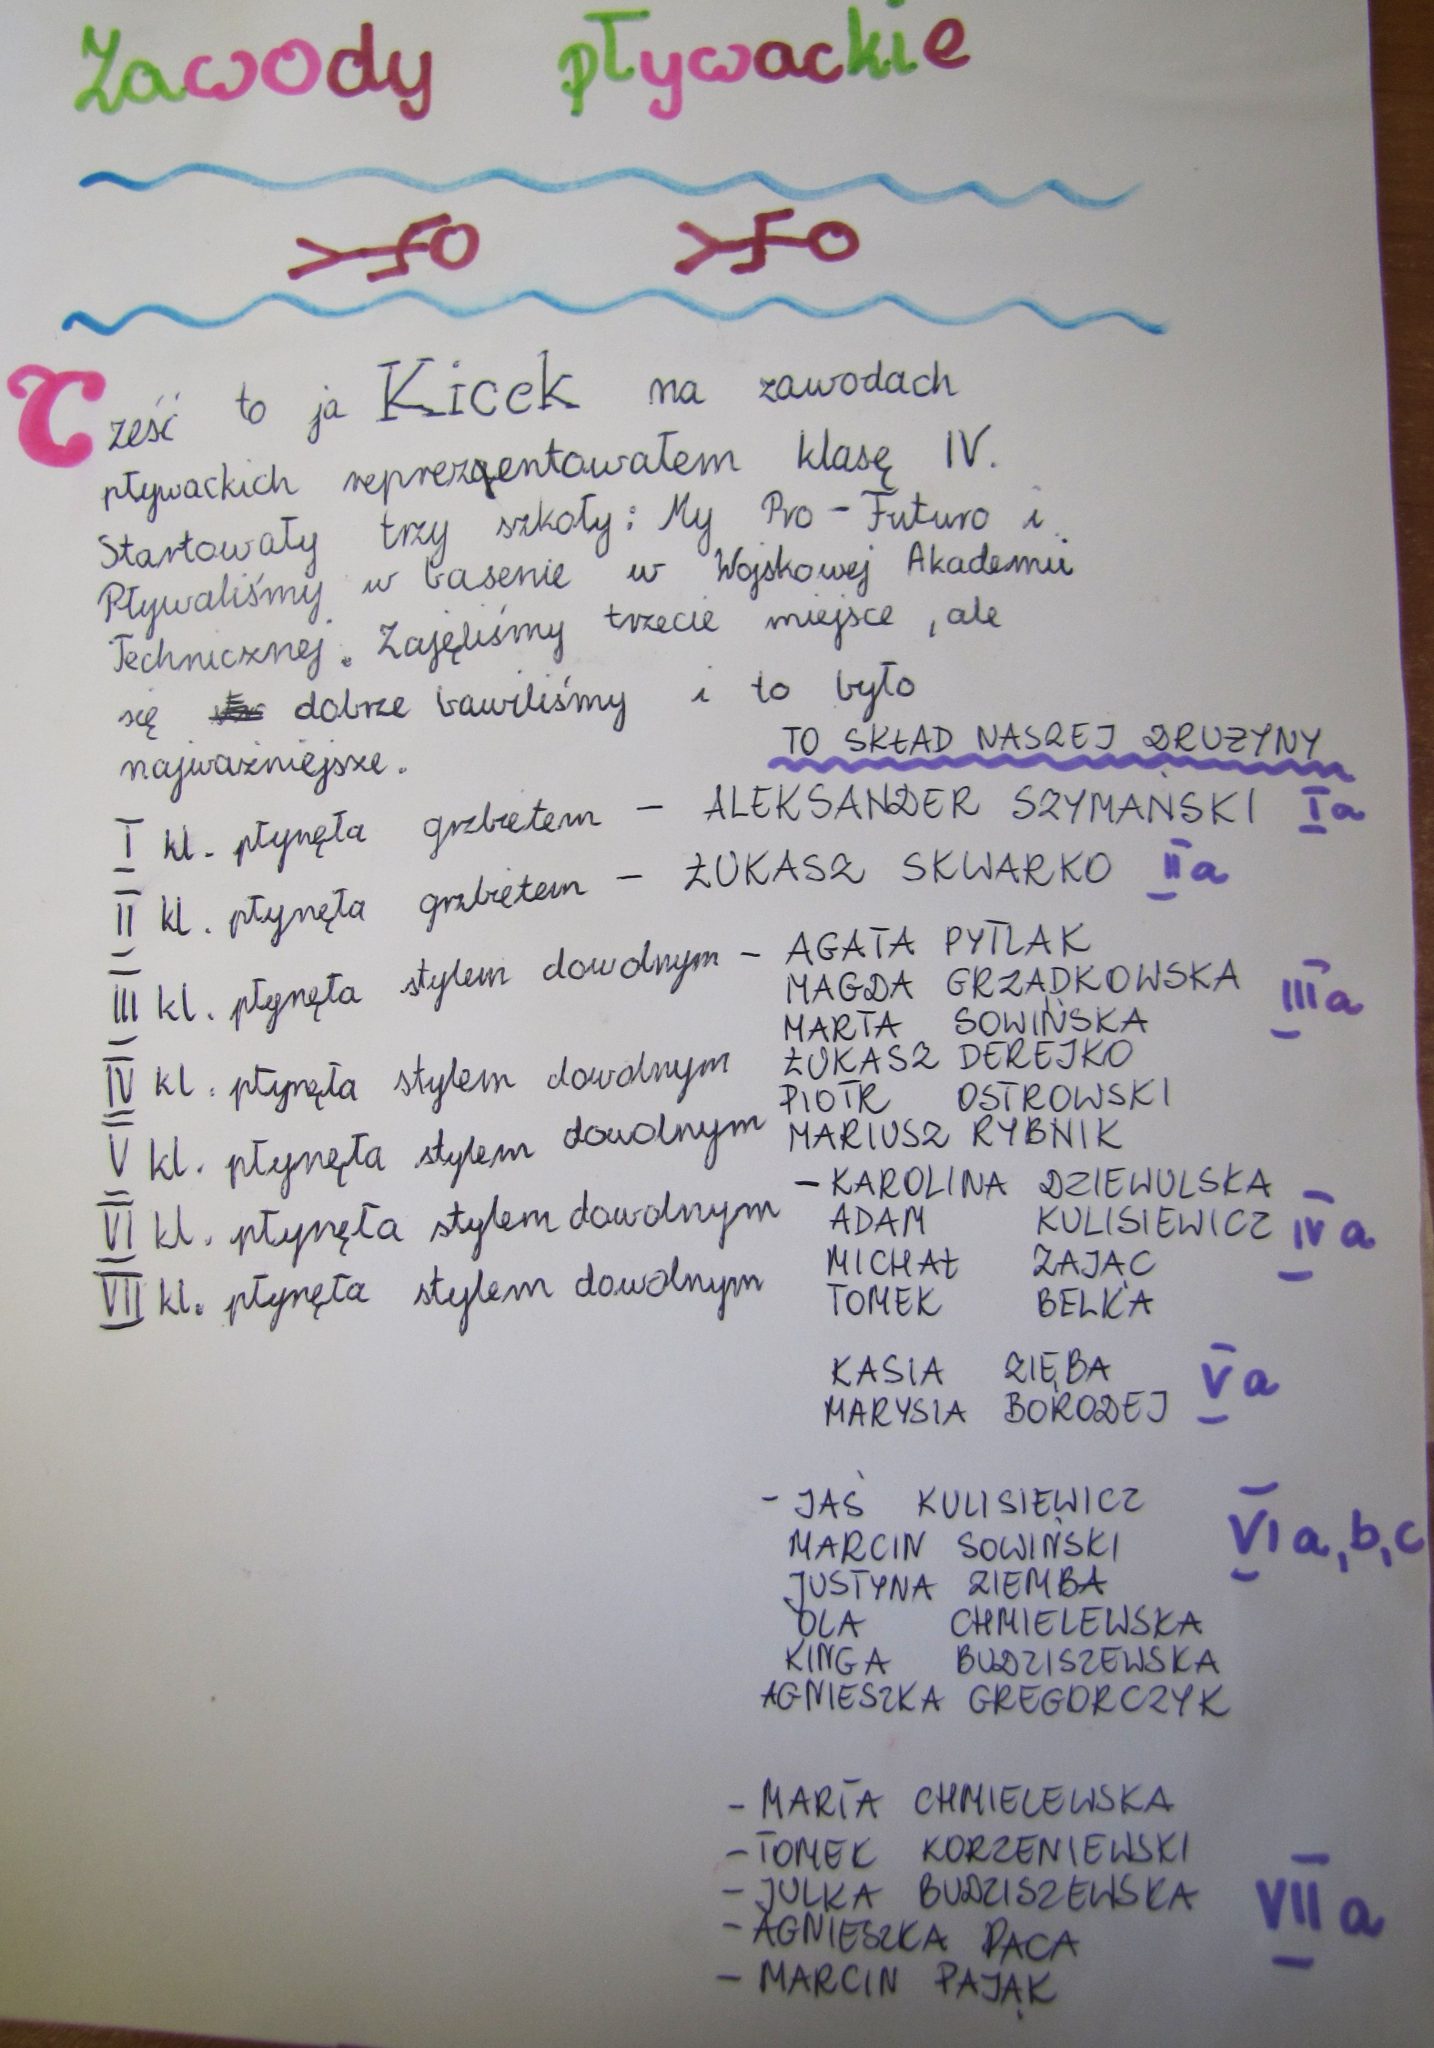 Zawody pływackie
Cześć to ja Kicek na zawodach
pływackich reprezentowałem klasę IV.
Startowały trzy szkoły: My Pro-Futuro i
Pływaliśmy w basenie w Wojskowej Akademii
Technicznej. Zajęliśmy trzecie miejsce, ale
się dobrze bawiliśmy i to było
najważniejsze.
TO SKŁAD NASZEJ DRUŻYNY
I kl. płynęła grzbietem - ALEKSANDER SZYMAŃSKI Ia
II kl. płynęła grzbietem - ŁUKASZ SKWARKO IIa
III kl. płynęła stylem dowolnym - AGATA PYTLAK
MAGDA GRZĄDKOWSKA IIIa
MARTA SOWIŃSKA
IV kl. płynęła stylem dowolnym ŁUKASZ DEREJKO
PIOTR OSTROWSKI
V kl. płynęła stylem dowolnym MARIUSZ RYBNIK
- KAROLINA DZIEWULSKA
VI kl. płynęła stylem dowolnym ADAM KULISIEWICZ IVa
MICHAŁ ZAJĄC
VII kl. płynęła stylem dowolnym TOMEK BELKA
KASIA ZIĘBA Va
MARYSIA BORODEJ
- JAŚ KULISIEWICZ
MARCIN SOWIŃSKI VIa,b,c
JUSTYNA ZIEMBA
OLA CHMIELEWSKA
KINGA BUDZISZEWSKA
AGNIESZKA GREGORCZYK
- MARTA CHMIELEWSKA
- TOMEK KORZENIEWSKI
- JULKA BUDZISZEWSKA VIIa
- AGNIESZKA PACA
- MARCIN PAJĄK